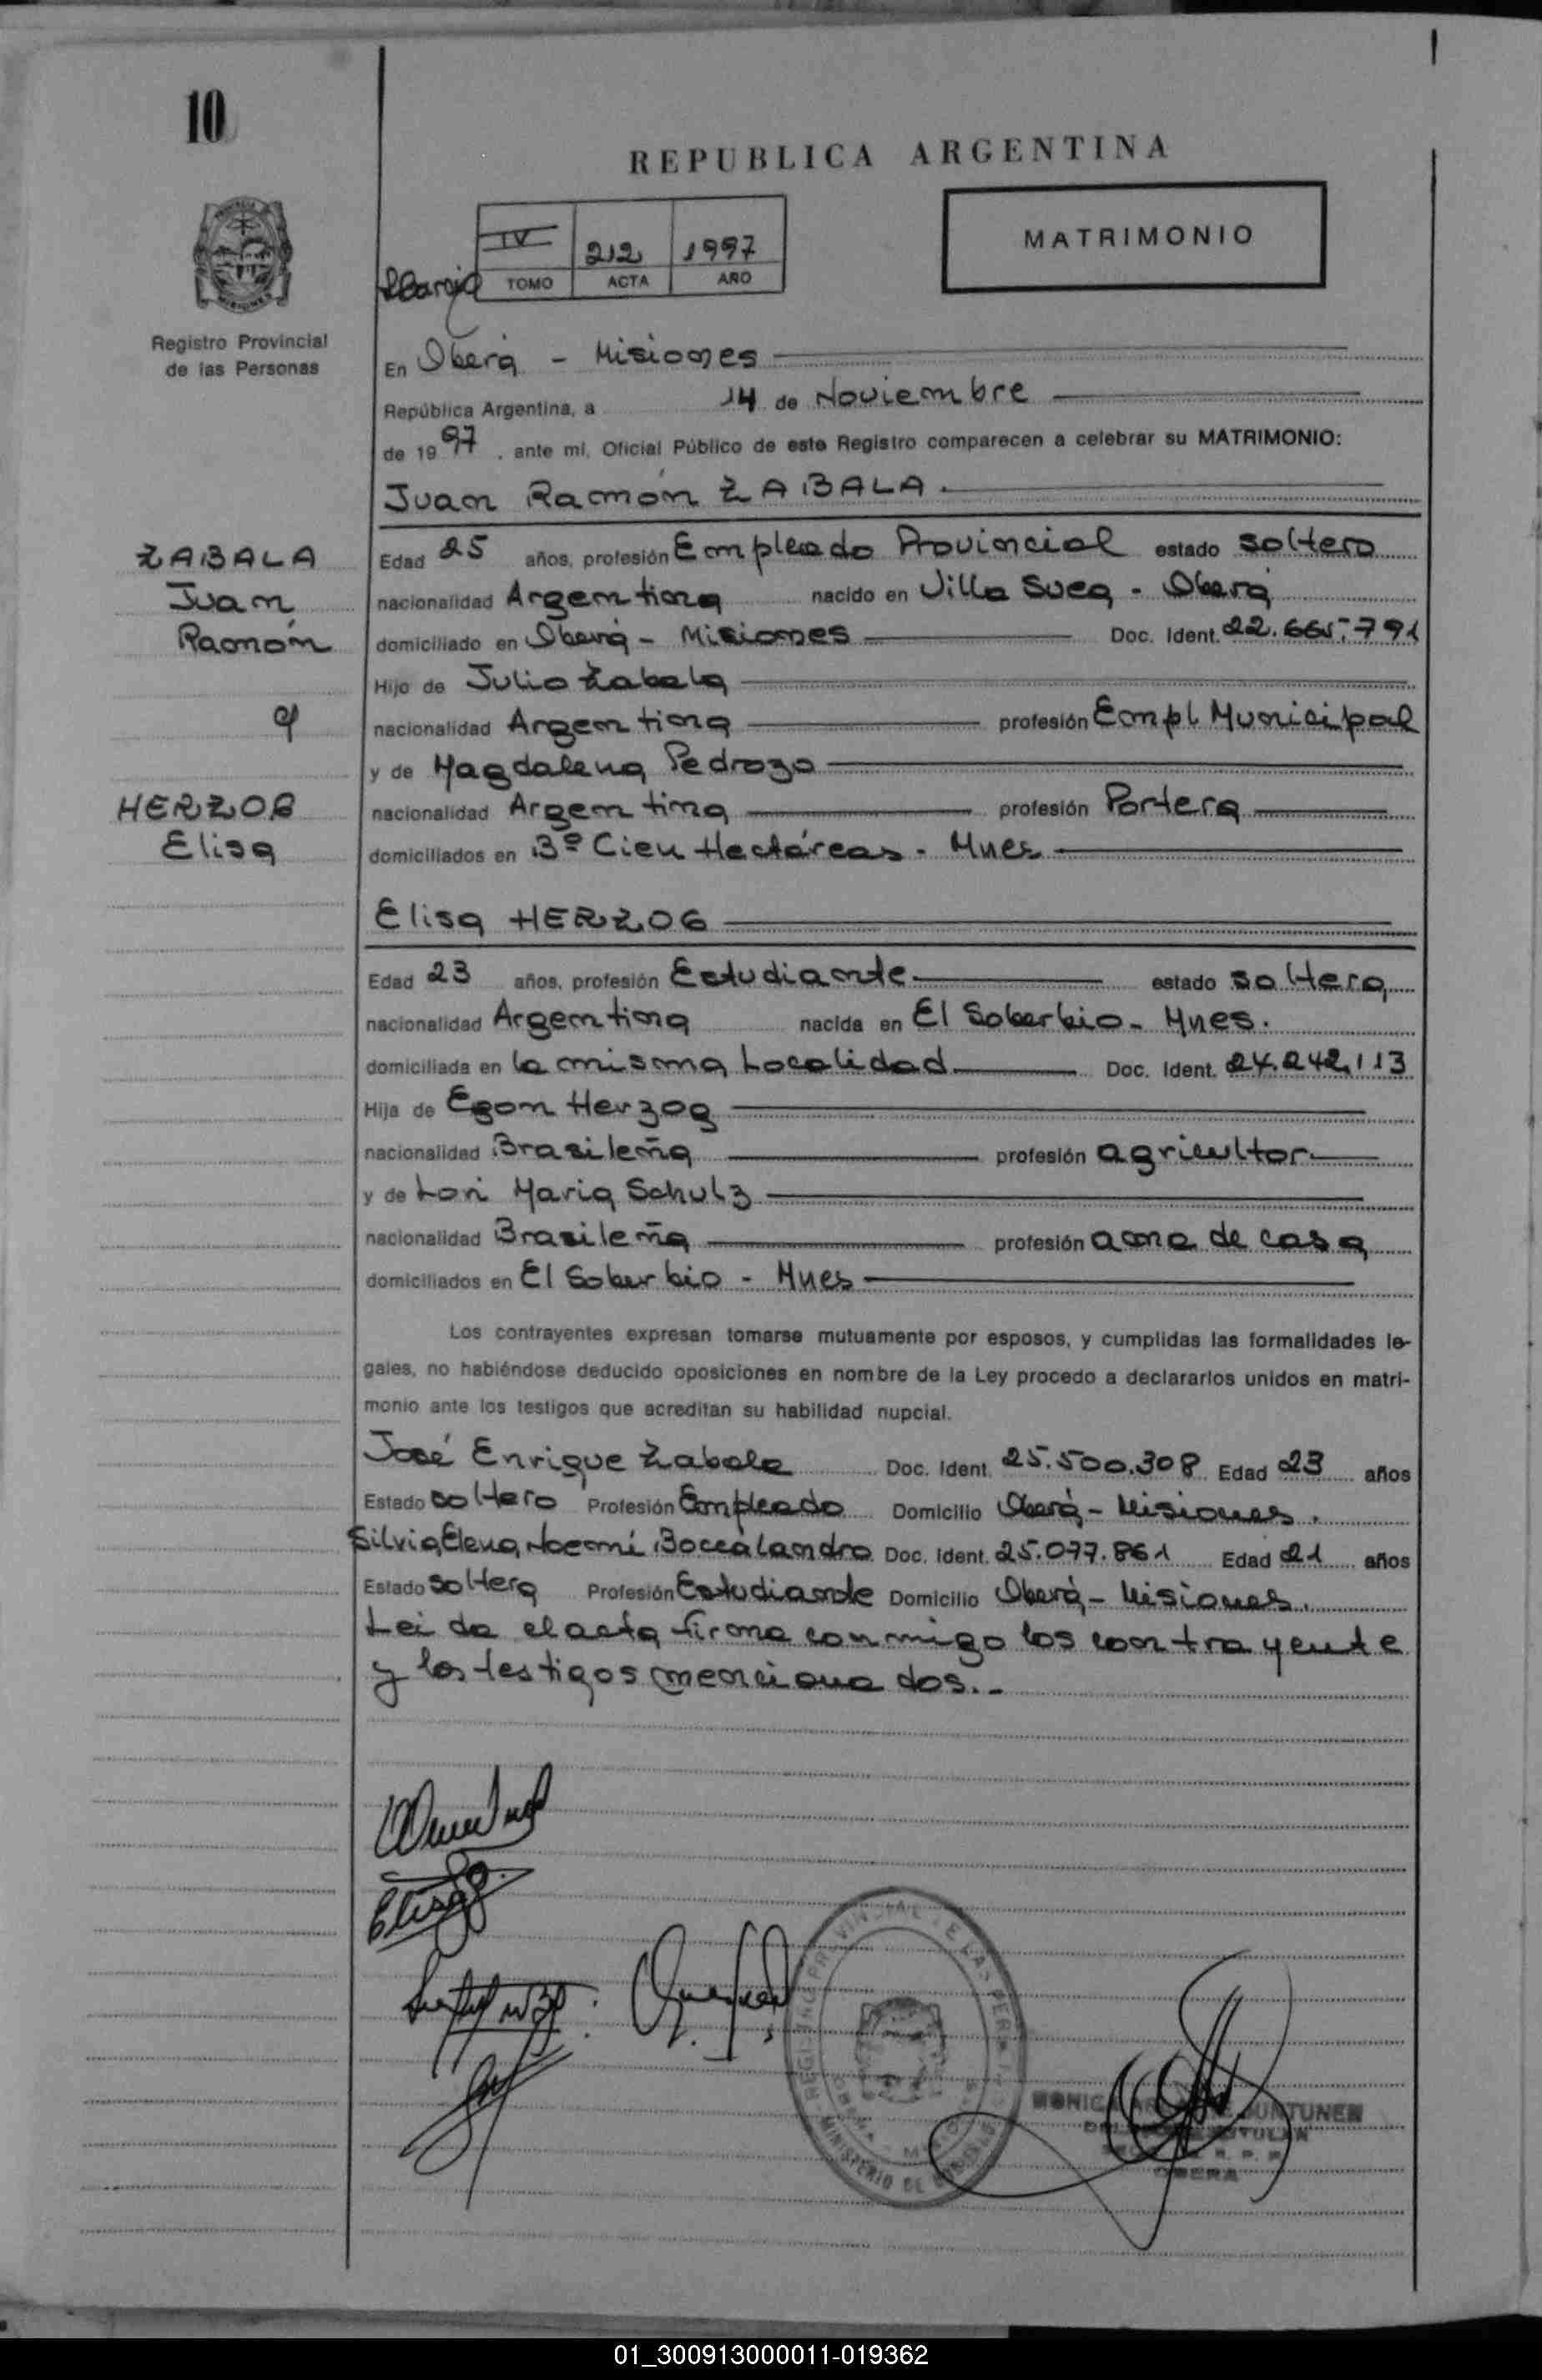 10
REPUBLICA ARGENTINA
IV 212 1997
TOMO ACTA AÑO
MATRIMONIO
Registro Provincial
de las Personas
En Oberá - Misiones
República Argentina, a 14 de Noviembre
de 1997, ante mi, Oficial Público de este Registro comparecen a celebrar su MATRIMONIO:
Juan Ramón ZABALA.
ZABALA
Juan
Ramón
c/
HERZOG
Elisa
Edad 25 años, profesión Empleado Provincial estado soltero
nacionalidad Argentina nacido en Villa Svea - Oberá
domiciliado en Oberá - Misiones Doc. Ident. 22.665.791
Hijo de Julio Zabala
nacionalidad Argentina profesión Empl Municipal
y de Magdalena Pedrozo
nacionalidad Argentina profesión Portera
domiciliados en Bº Cien Hectáreas - Mnes
Elisa HERZOG
Edad 23 años, profesión Estudiante estado soltera
nacionalidad Argentina nacida en El Soberbio - Mnes.
domiciliada en la misma Localidad Doc. Ident. 24.242.113
Hija de Egon Herzog
nacionalidad Brasileña profesión agricultor
y de Lori Maria Schulz
nacionalidad Brasileña profesión ama de casa
domiciliados en El Soberbio - Mnes
Los contrayentes expresan tomarse mutuamente por esposos, y cumplidas las formalidades le-
gales, no habiéndose deducido oposiciones en nombre de la Ley procedo a declararlos unidos en matri-
monio ante los testigos que acreditan su habilidad nupcial.
José Enrique Zabala Doc. Ident. 25.500.308 Edad 23 años
Estado soltero Profesión Empleado Domicilio Oberá - Misiones.
Silvia Elena Noemí Boccalandro Doc. Ident. 25.077.861 Edad 21 años
Estado soltera Profesión Estudiante Domicilio Oberá - Misiones.
Leida el acta firma conmigo los contrayente
y los testigos mencionados.-
Elisa
REGISTRO PROVINCIAL DE LAS PERSONAS
MINISTERIO DE GOBIERNO
OBERA
01_300913000011-019362